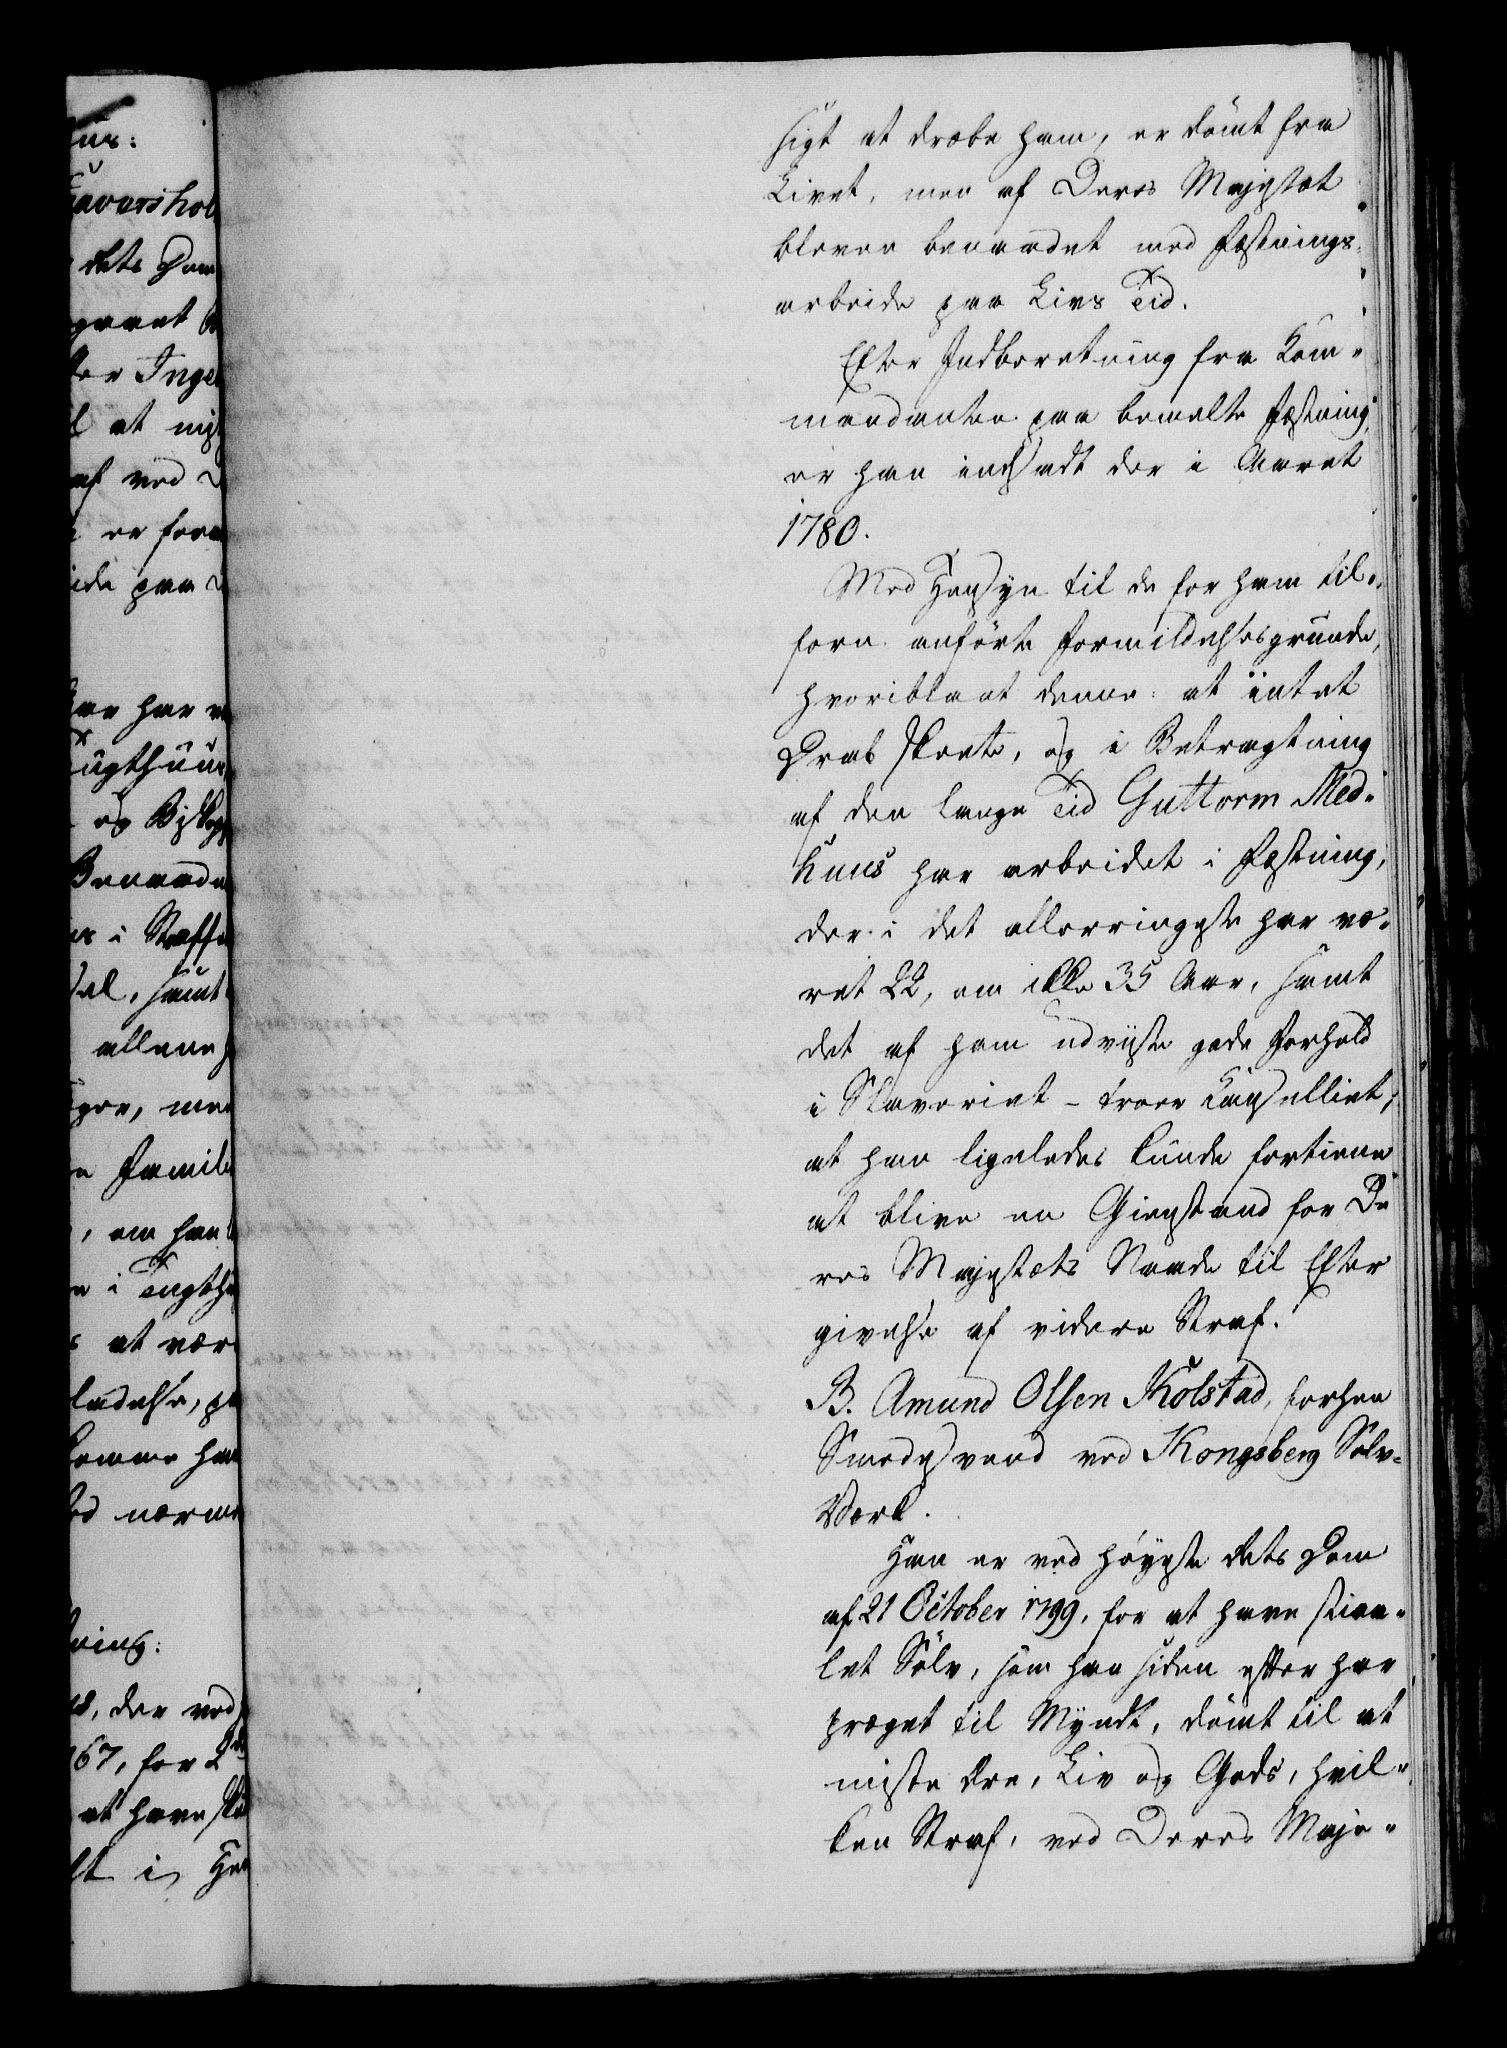 sigt at dræbe ham, er dömt fra
Livet, men af Deres Majestæt
bleven benaadet med Fæstnings-
arbeide paa Livs Tid.
Efter Indberetning fra Kom-
mandanten paa bemelte Fæstning,
er han indsadt der i Aaret
1780.
Med Hensyn til de for ham til-
forn anförte Formildelsesgrunde,
hvoriblant denne: at intet
Drab skeete, og i Betragtning
af den lange Tid Guttorm Med-
huus har arbeidet i Fæstning,
der i det allerringeste har væ-
ret 22, om ikke 35 Aar, samt
det af ham udviiste gode Forhold
i Slaveriet - troer Cancelliet,
at han ligeledes kunde fortiene
at blive en Gienstand for De
res Majestæts Naade til Efter
givelse af videre Straf.
B. Amund Olsen Kolstad, forhen
Smedesvend ved Kongsberg Sölv-
Værk.
Han er ved höyeste Rets Dom
af 21 October 1799, for at have stiaa-
let Sölv, som han siden efter har
præget til Myndt, dömt til at
miste Ære, Liv og Gods, hvil-
ken Straf, ved Deres Maje-